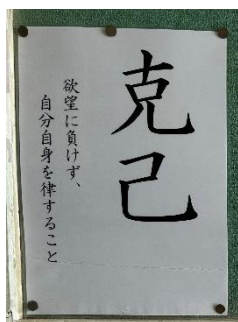 克己
欲望に負けず、
自分自身を律すること